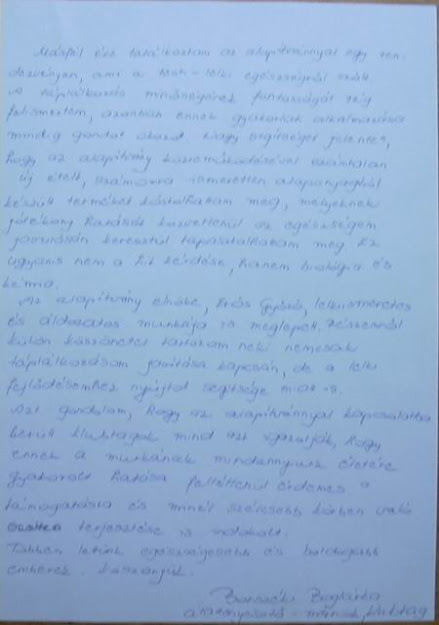 Másfél éve találkoztam az alapítvánnyal egy ren-
dezvényen, ami a testi-lelki egészségről szólt.
A táplálkozás minőségének fontosságát rég
felismertem, azonban ennek gyakorlati alkalmazása
mindig gondot okozott. Nagy segítséget jelentett,
hogy az alapítvány közreműködésével számtalan
új ételt, számomra ismeretlen alapanyagból
készült terméket kóstolhattam meg, melyeknek
jótékony hatását közvetlenül az egészségem
javulásán keresztül tapasztalhattam meg. Ez
ugyanis nem a hit kérdése, hanem biológia és
kémia.
Az alapítvány elnöke, Győző, lelkiismeretes
és áldozatos munkája is meglepett. Részemről
külön köszönettel tartozom neki nemcsak
táplálkozásom javítása kapcsán, de a lelki
fejlődésemhez nyújtott segítsége miatt is.
Azt gondolom, hogy az alapítvánnyal kapcsolatba
került klubtagok mind azt igazolják, hogy
ennek a munkának mindannyiunk életére
gyakorolt hatása feltétlenül érdemes a
támogatásra és minél szélesebb körben való
terjesztése is indokolt.
Többen lettünk egészségesebb és boldogabb
emberek. Köszönjük.
Boglárka
mérnök, klubtag